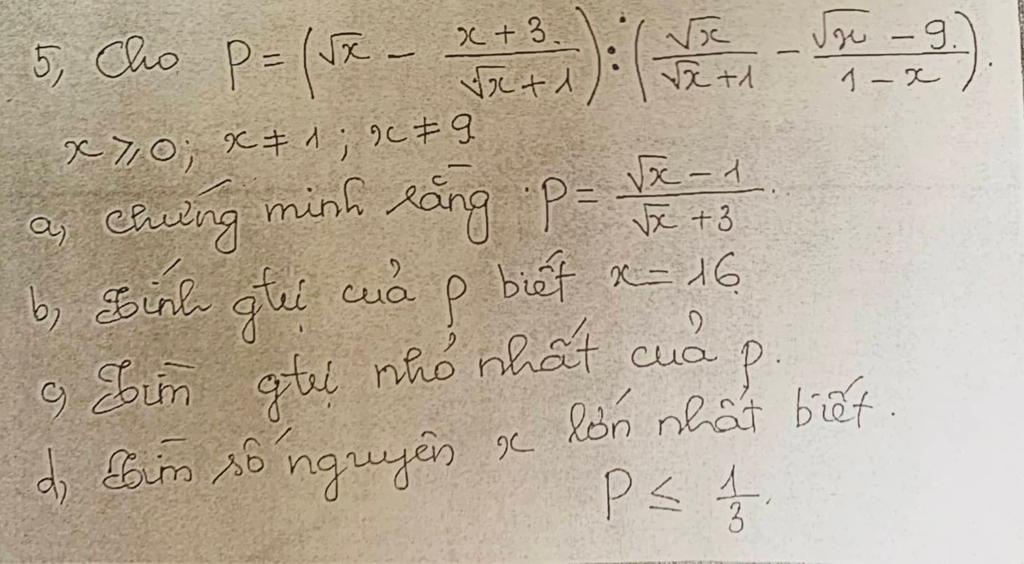 5, Cho P = (√x − (x + 3)/(√x + 1)) : (√x/(√x + 1) − (√x − 9)/(1 − x)).
x ⩾ 0; x ≠ 1; x ≠ 9
a, Chứng minh rằng P = (√x − 1)/(√x + 3).
b, Tính gtrị của P biết x = 16
c, Tìm gtrị nhỏ nhất của P.
d, Tìm số nguyên x lớn nhất biết.
P ≤ 1/3.